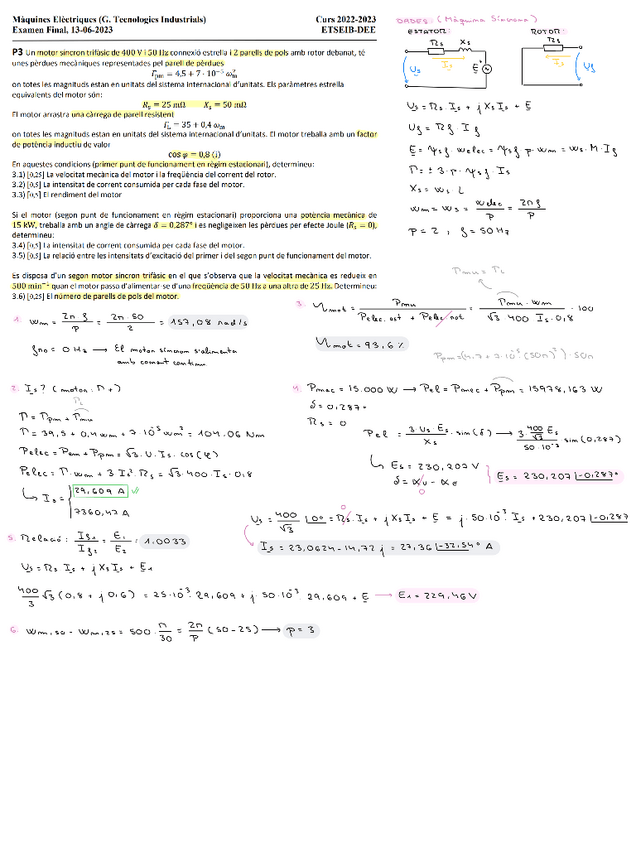 Màquines Elèctriques (G. Tecnologies Industrials)
Examen Final, 13-06-2023
Curs 2022-2023
ETSEIB-DEE
P3 Un motor síncron trifàsic de 400 V i 50 Hz connexió estrella i 2 parells de pols amb rotor debanat, té
unes pèrdues mecàniques representades pel parell de pèrdues
Γpm = 4,5 + 7 · 10⁻⁵ ωm²
on totes les magnituds estan en unitats del sistema internacional d'unitats. Els paràmetres estrella
equivalents del motor són:
Rs = 25 mΩ Xs = 50 mΩ
El motor arrastra una càrrega de parell resistent
Γr = 35 + 0,4 ωm
on totes les magnituds estan en unitats del sistema internacional d'unitats. El motor treballa amb un factor
de potència inductiu de valor
cos φ = 0,8 (i)
En aquestes condicions (primer punt de funcionament en règim estacionari), determineu:
3.1) [0,25] La velocitat mecànica del motor i la freqüència del corrent del rotor.
3.2) [0,5] La intensitat de corrent consumida per cada fase del motor.
3.3) [0,5] El rendiment del motor
Si el motor (segon punt de funcionament en règim estacionari) proporciona una potència mecànica de
15 kW, treballa amb un angle de càrrega δ = 0,287° i es negligeixen les pèrdues per efecte Joule (Rs = 0),
determineu:
3.4) [0,5] La intensitat de corrent consumida per cada fase del motor.
3.5) [0,5] La relació entre les intensitats d'excitació del primer i del segon punt de funcionament del motor.
Es disposa d'un segon motor síncron trifàsic en el que s'observa que la velocitat mecànica es redueix en
500 min⁻¹ quan el motor passa d'alimentar-se d'una freqüència de 50 Hz a una altra de 25 Hz. Determineu:
3.6) [0,25] El número de parells de pols del motor.
DADES: (Màquina Síncrona)
ESTATOR: ROTOR:
Rs Xs Rs
Us Is E Uf
Us = Rs Is + j Xs Is + E
Uf = Rf · If
E = Ψf · welec = Ψf · p · wm = ws · M · If
Γ = ± 3 · p · Ψf · Is
Xs = ws L
wm = ws = welec/p = 2πf/p
P = 2 ; f = 50 Hz
1. wm = 2πf/p = 2π·50/2 = 157,08 rad/s
= 0 Hz → El motor síncron s'alimenta
amb corrent continu
2. Is? (motor: Γ+)
Γ = Γpm + Γmu
Γ = 39,5 + 0,4 wm + 7·10⁻⁵ wm² = 104.06 Nm
Pelec = Pem + Ppm = √3 · U · Is · cos(φ)
Pelec = Γ · wm + 3 Is² · Rs = √3 · 400 · Is · 0,8
Is = 29,609 A
7360,47 A
3. ηmot = Pmu / (Pelec.est + Pelec rot) = Γmu · wm / (√3 · 400 Is · 0,8) · 100
Γmu = Γr
ηmot = 93,6 %
4. Pmec = 15.000 W → Pel = Pmec + Ppm = 15978,163 W
δ = 0,287°
Rs = 0
Pel = 3 Us · Es / Xs · sin(δ)
Es = 230,207 V
Es = 230,207 |-0,287°
Us = 400/√3 |0° = Rs · Is + j Xs Is + E = j · 50·10⁻³ Is + 230,207 |-0,287
Is = 23,0624 - 14,72 j = 27,36 |-32,54° A
5. Relació: If1/If2 = E1/E2 = 1.0033
Us = Rs Is + j Xs Is + E1
400/3 √3 (0,8 + j 0,6) = 25·10⁻³ · 29,609 + j · 50·10⁻³ · 29,609 + E → E1 = 229,46 V
6. wm,50 - wm,25 = 500 · π/30 = 2π/p (50 - 25) → p = 3